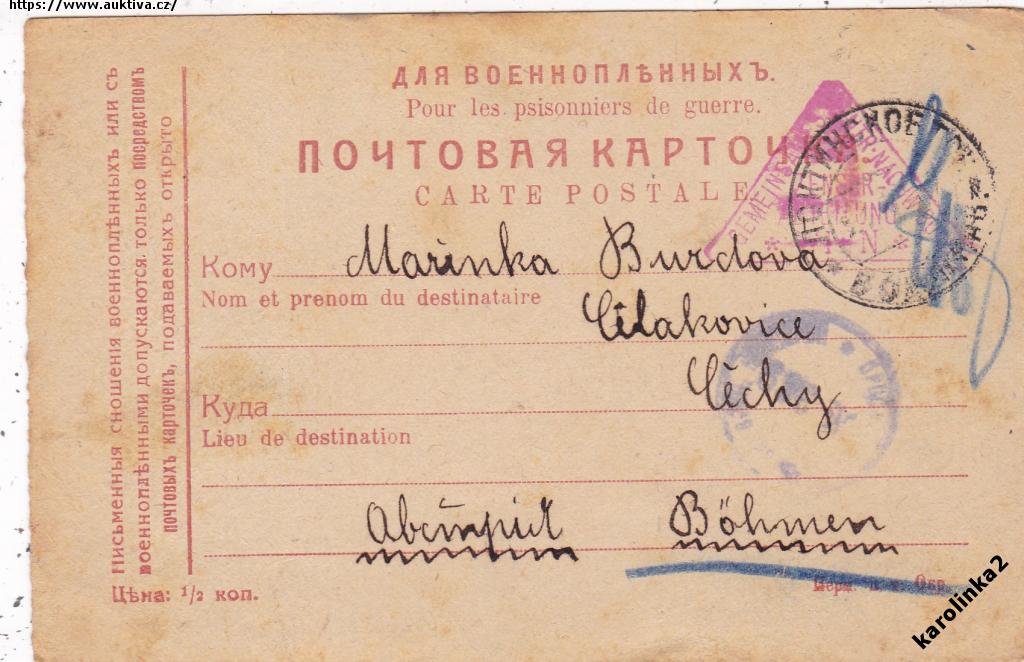 https://www.auktiva.cz/
ДЛЯ ВОЕННОПЛѢННЫХЪ.
Pour les psisonniers de guerre.
ПОЧТОВАЯ КАРТОЧ
CARTE POSTALE
Кому Marinka Burdova
Nom et prenom du destinataire
Čelakovice
Čechy
Куда
Lieu de destination
Австрия Böhmen
Письменныя сношенія военноплѣнныхъ или съ
военноплѣнными допускаются только посредствомъ
почтовыхъ карточекъ, подаваемыхъ открыто
Цѣна: 1/2 коп.
GEMEINSA
karolinka2